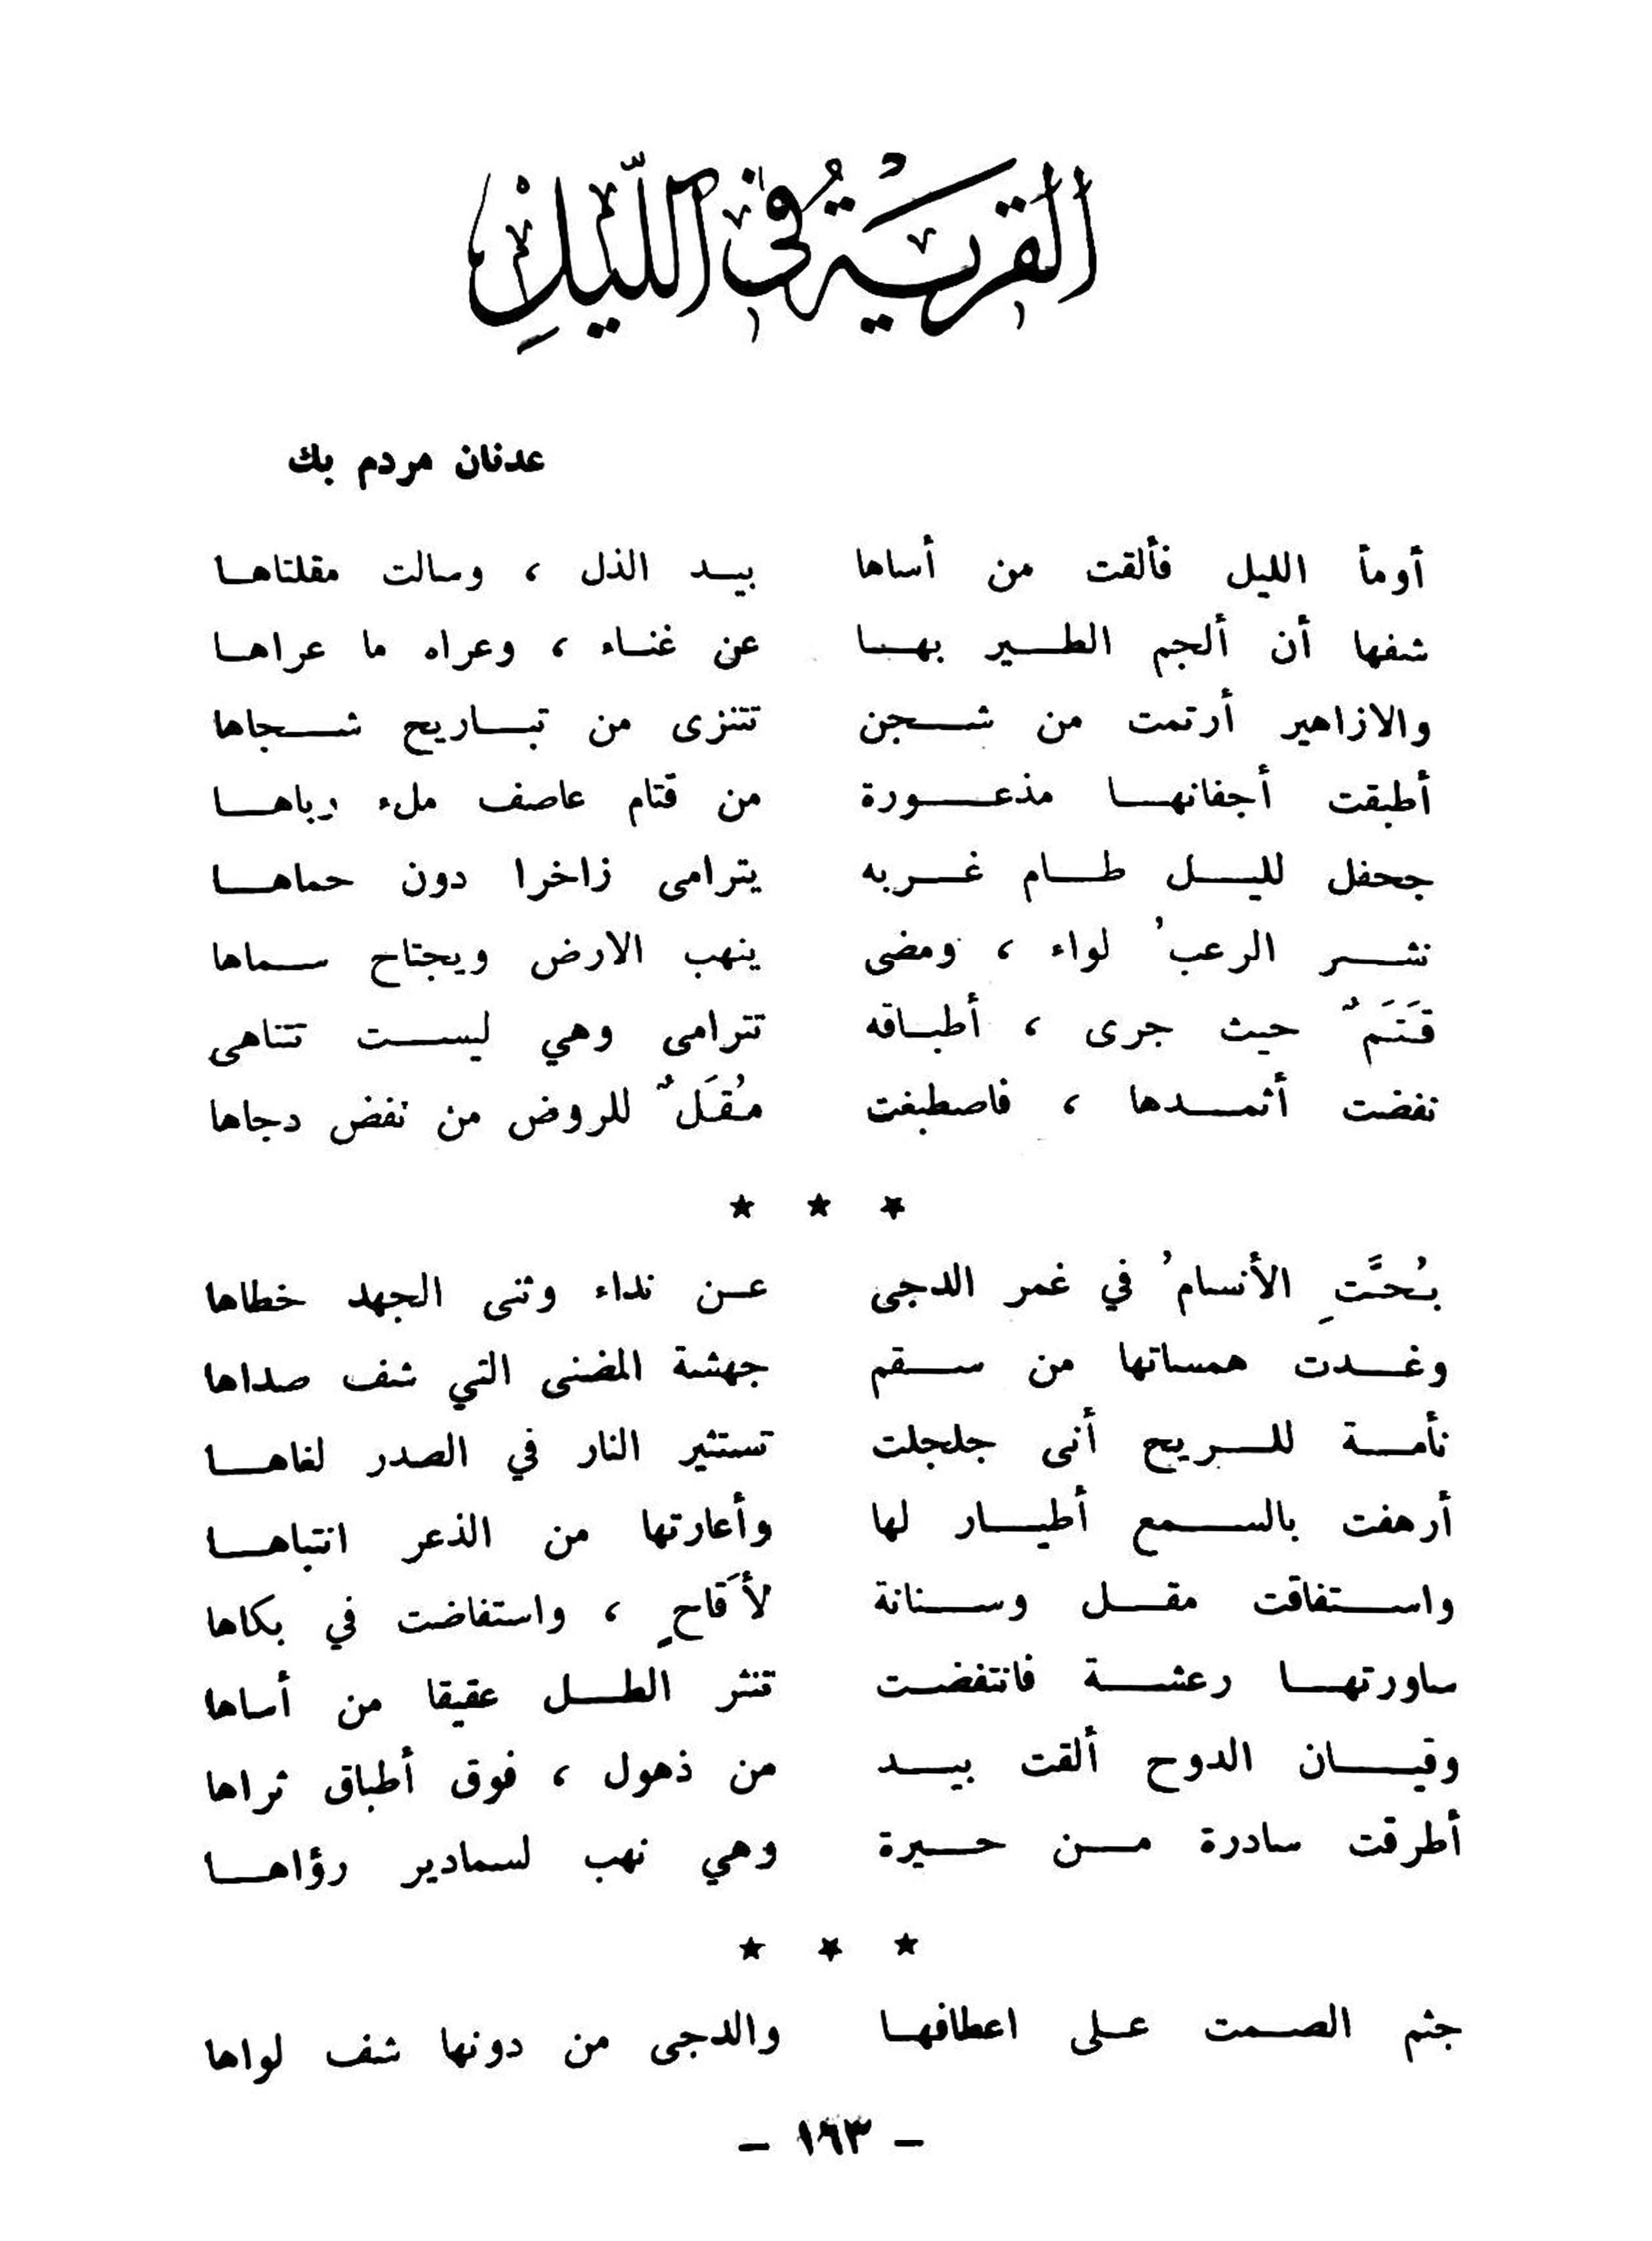 القرية في الليل
عدنان مردم بك
أومأ الليل فألقت من أساها بيد الذل ، وسالت مقلتاها
شفها أن ألجم الطير بها عن غناء ، وعراه ما عراها
والازاهير أرتمت من شجن تتنزى من تباريح شجاها
أطبقت أجفانها مذعورة من قتام عاصف ملء رباها
جحفل لليل طام غربه يترامى زاخرا دون حماها
نشر الرعبُ لواء ، ومضى ينهب الارض ويجتاح سماها
قَتَمٌ حيث جرى ، أطباقه تترامى وهي ليست تتناهى
نفضت أثمدها ، فاصطبغت مُقَلٌ للروض من نفض دجاها
★ ★ ★
بُحَّتِ الأنسامُ في غمر الدجى عن نداء وثنى الجهد خطاها
وغدت همساتها من سقم جهشة المضنى التي شف صداها
نأمة للريح أنى جلجلت تستثير النار في الصدر لغاها
أرهفت بالسمع أطيار لها وأعارتها من الذعر انتباها
واستفاقت مقل وسنانة لأَقاحٍ ، واستفاضت في بكاها
ساورتها رعشة فانتفضت تنثر الطل عقيقا من أساها
وقيان الدوح ألقت بيد من ذهول ، فوق أطباق ثراها
أطرقت سادرة من حيرة وهي نهب لسمادير رؤاها
★ ★ ★
جثم الصمت على اعطافها والدجى من دونها شف لواها
- ١٦٣ -